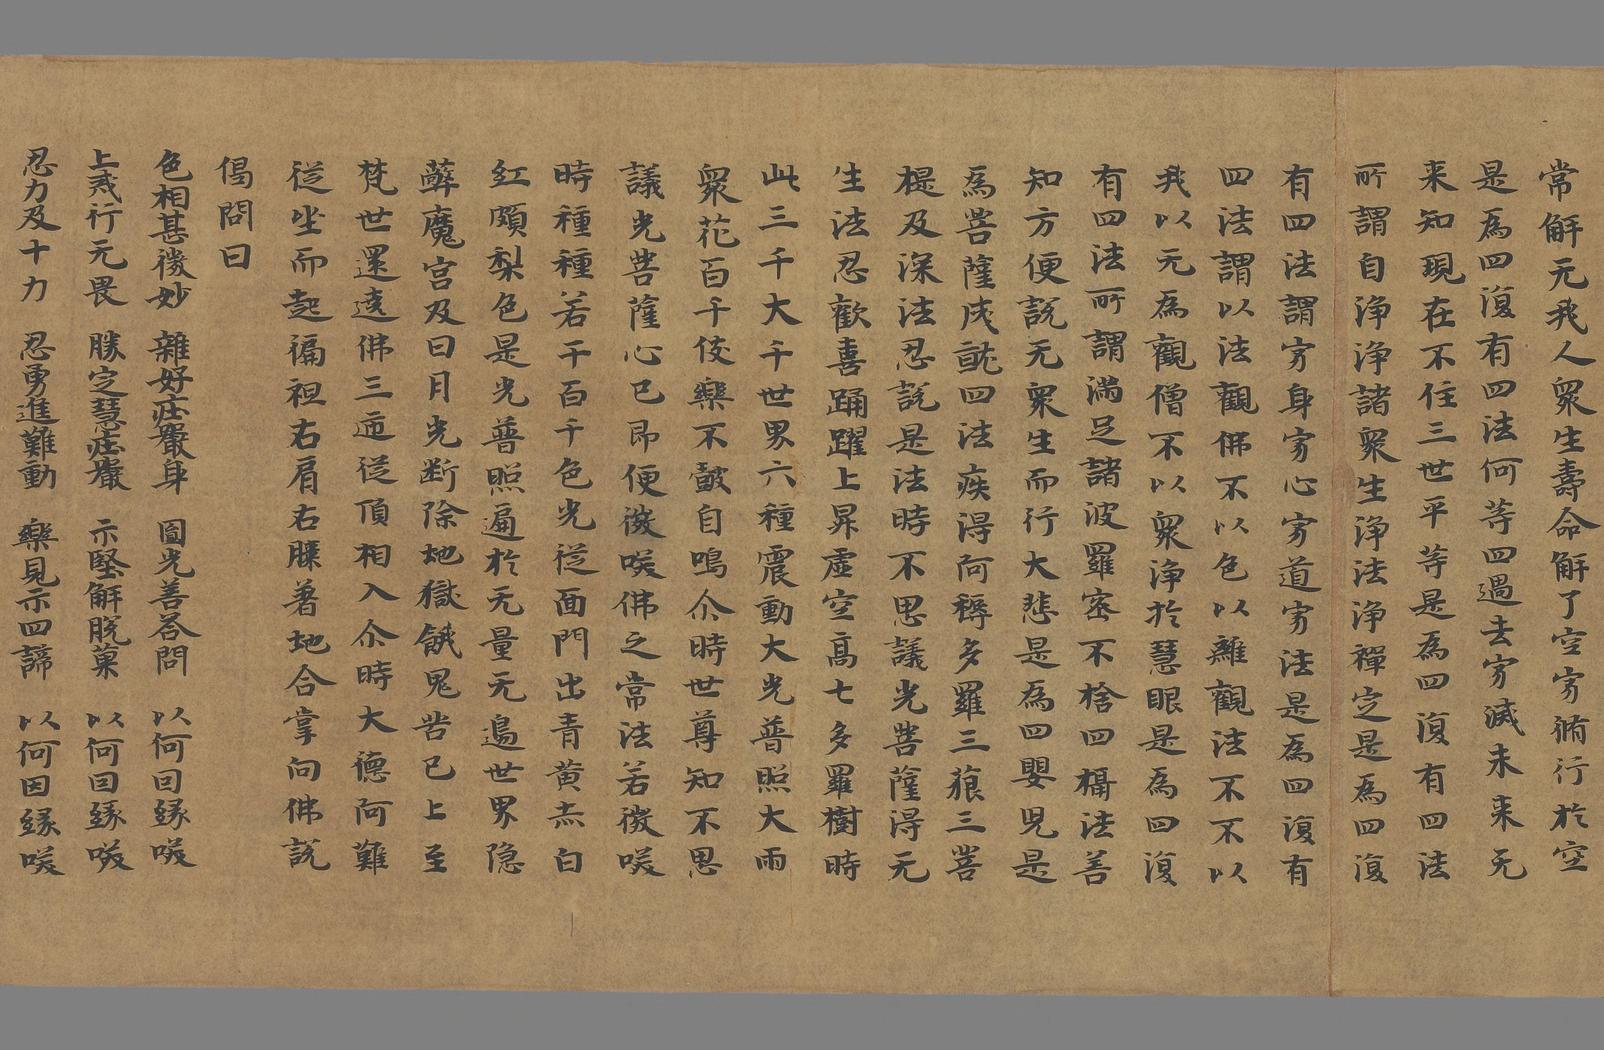 常解无我人衆生壽命解了空寂脩行於空
是為四復有四法何等四過去寂滅未来无
来知現在不住三世平等是為四復有四法
所謂自淨淨諸衆生淨法淨禪定是為四復
有四法謂寂身寂心寂道寂法是為四復有
四法謂以法觀佛不以色以離觀法不不以
我以无為觀僧不以衆淨於慧眼是為四復
有四法所謂滿足諸波羅蜜不捨四攝法善
知方便說无衆生而行大悲是為四嬰兒是
為菩薩成就四法疾得阿耨多羅三藐三菩
提及深法忍說是法時不思議光菩薩得无
生法忍歡喜踊躍上昇虛空高七多羅樹時
此三千大千世界六種震動大光普照大雨
衆花百千伎樂不皷自鳴尒時世尊知不思
議光菩薩心已即便微咲佛之常法若微咲
時種種若干百千色光從面門出青黄赤白
紅頗梨色是光普照遍於无量无邊世界隐
蔽魔宮及日月光断除地獄餓鬼苦已上至
梵世還遶佛三迊從頂相入尒時大德阿難
從坐而起徧袒右肩右膝著地合掌向佛說
偈問曰
色相甚微妙　雜好庄嚴身　圓光善荅問　以何因緣咲
上戒行无畏　勝定慧庄嚴　示堅解脫菓　以何因緣咲
忍力及十力　忍勇進難動　樂見示四諦　以何因緣咲